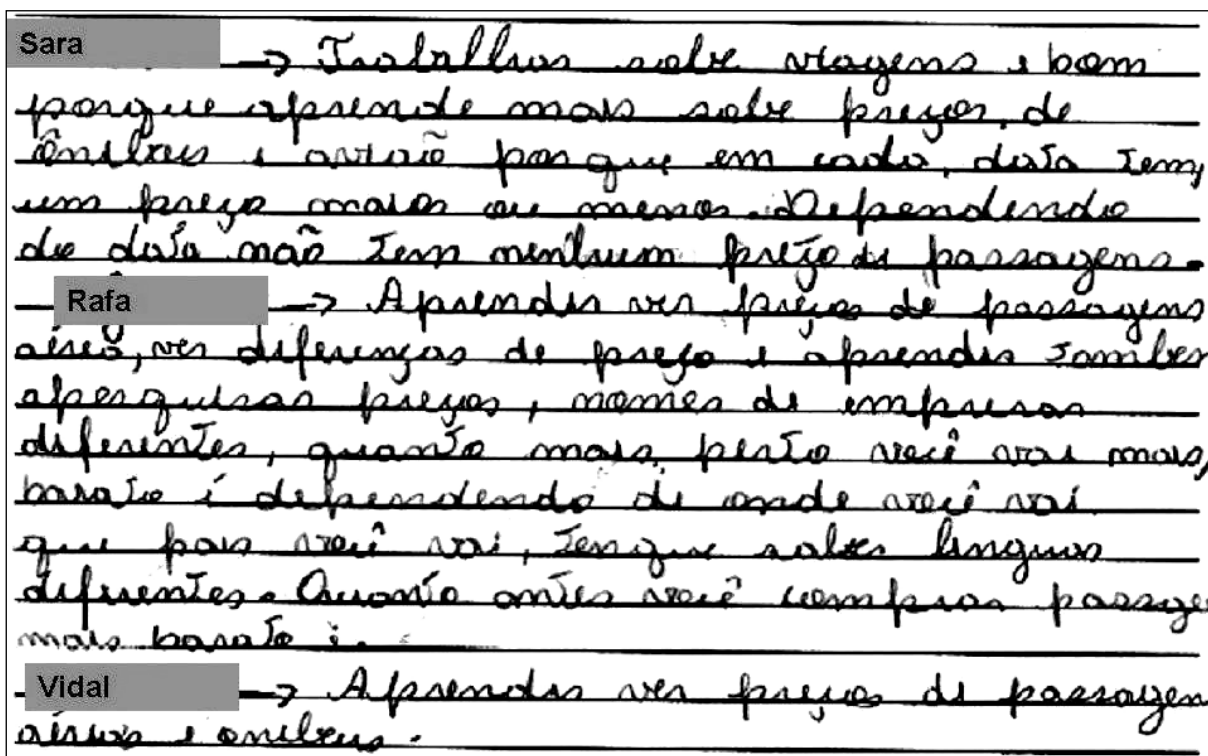 Sara → Trabalhos sobre viagens e bom
porque aprende mais sobre preços, de
ônibus e avião porque em cada, data tem,
um preço maior ou menor. Dependendo
da data não tem nenhum preço de passagens.
Rafa → Aprender ver preços de passagens
aéreo, ver diferenças de preço e aprender tambem
apesquisar preços, nomes de empresas
diferentes, quanto mais perto você vai mais,
barato é dependendo de onde você vai
que pais você vai, tenque saber linguas
diferentes. Quanto antes você comprar passage
mais barato é.
Vidal → Aprender ver preços de passagen
aéreos e onibus.